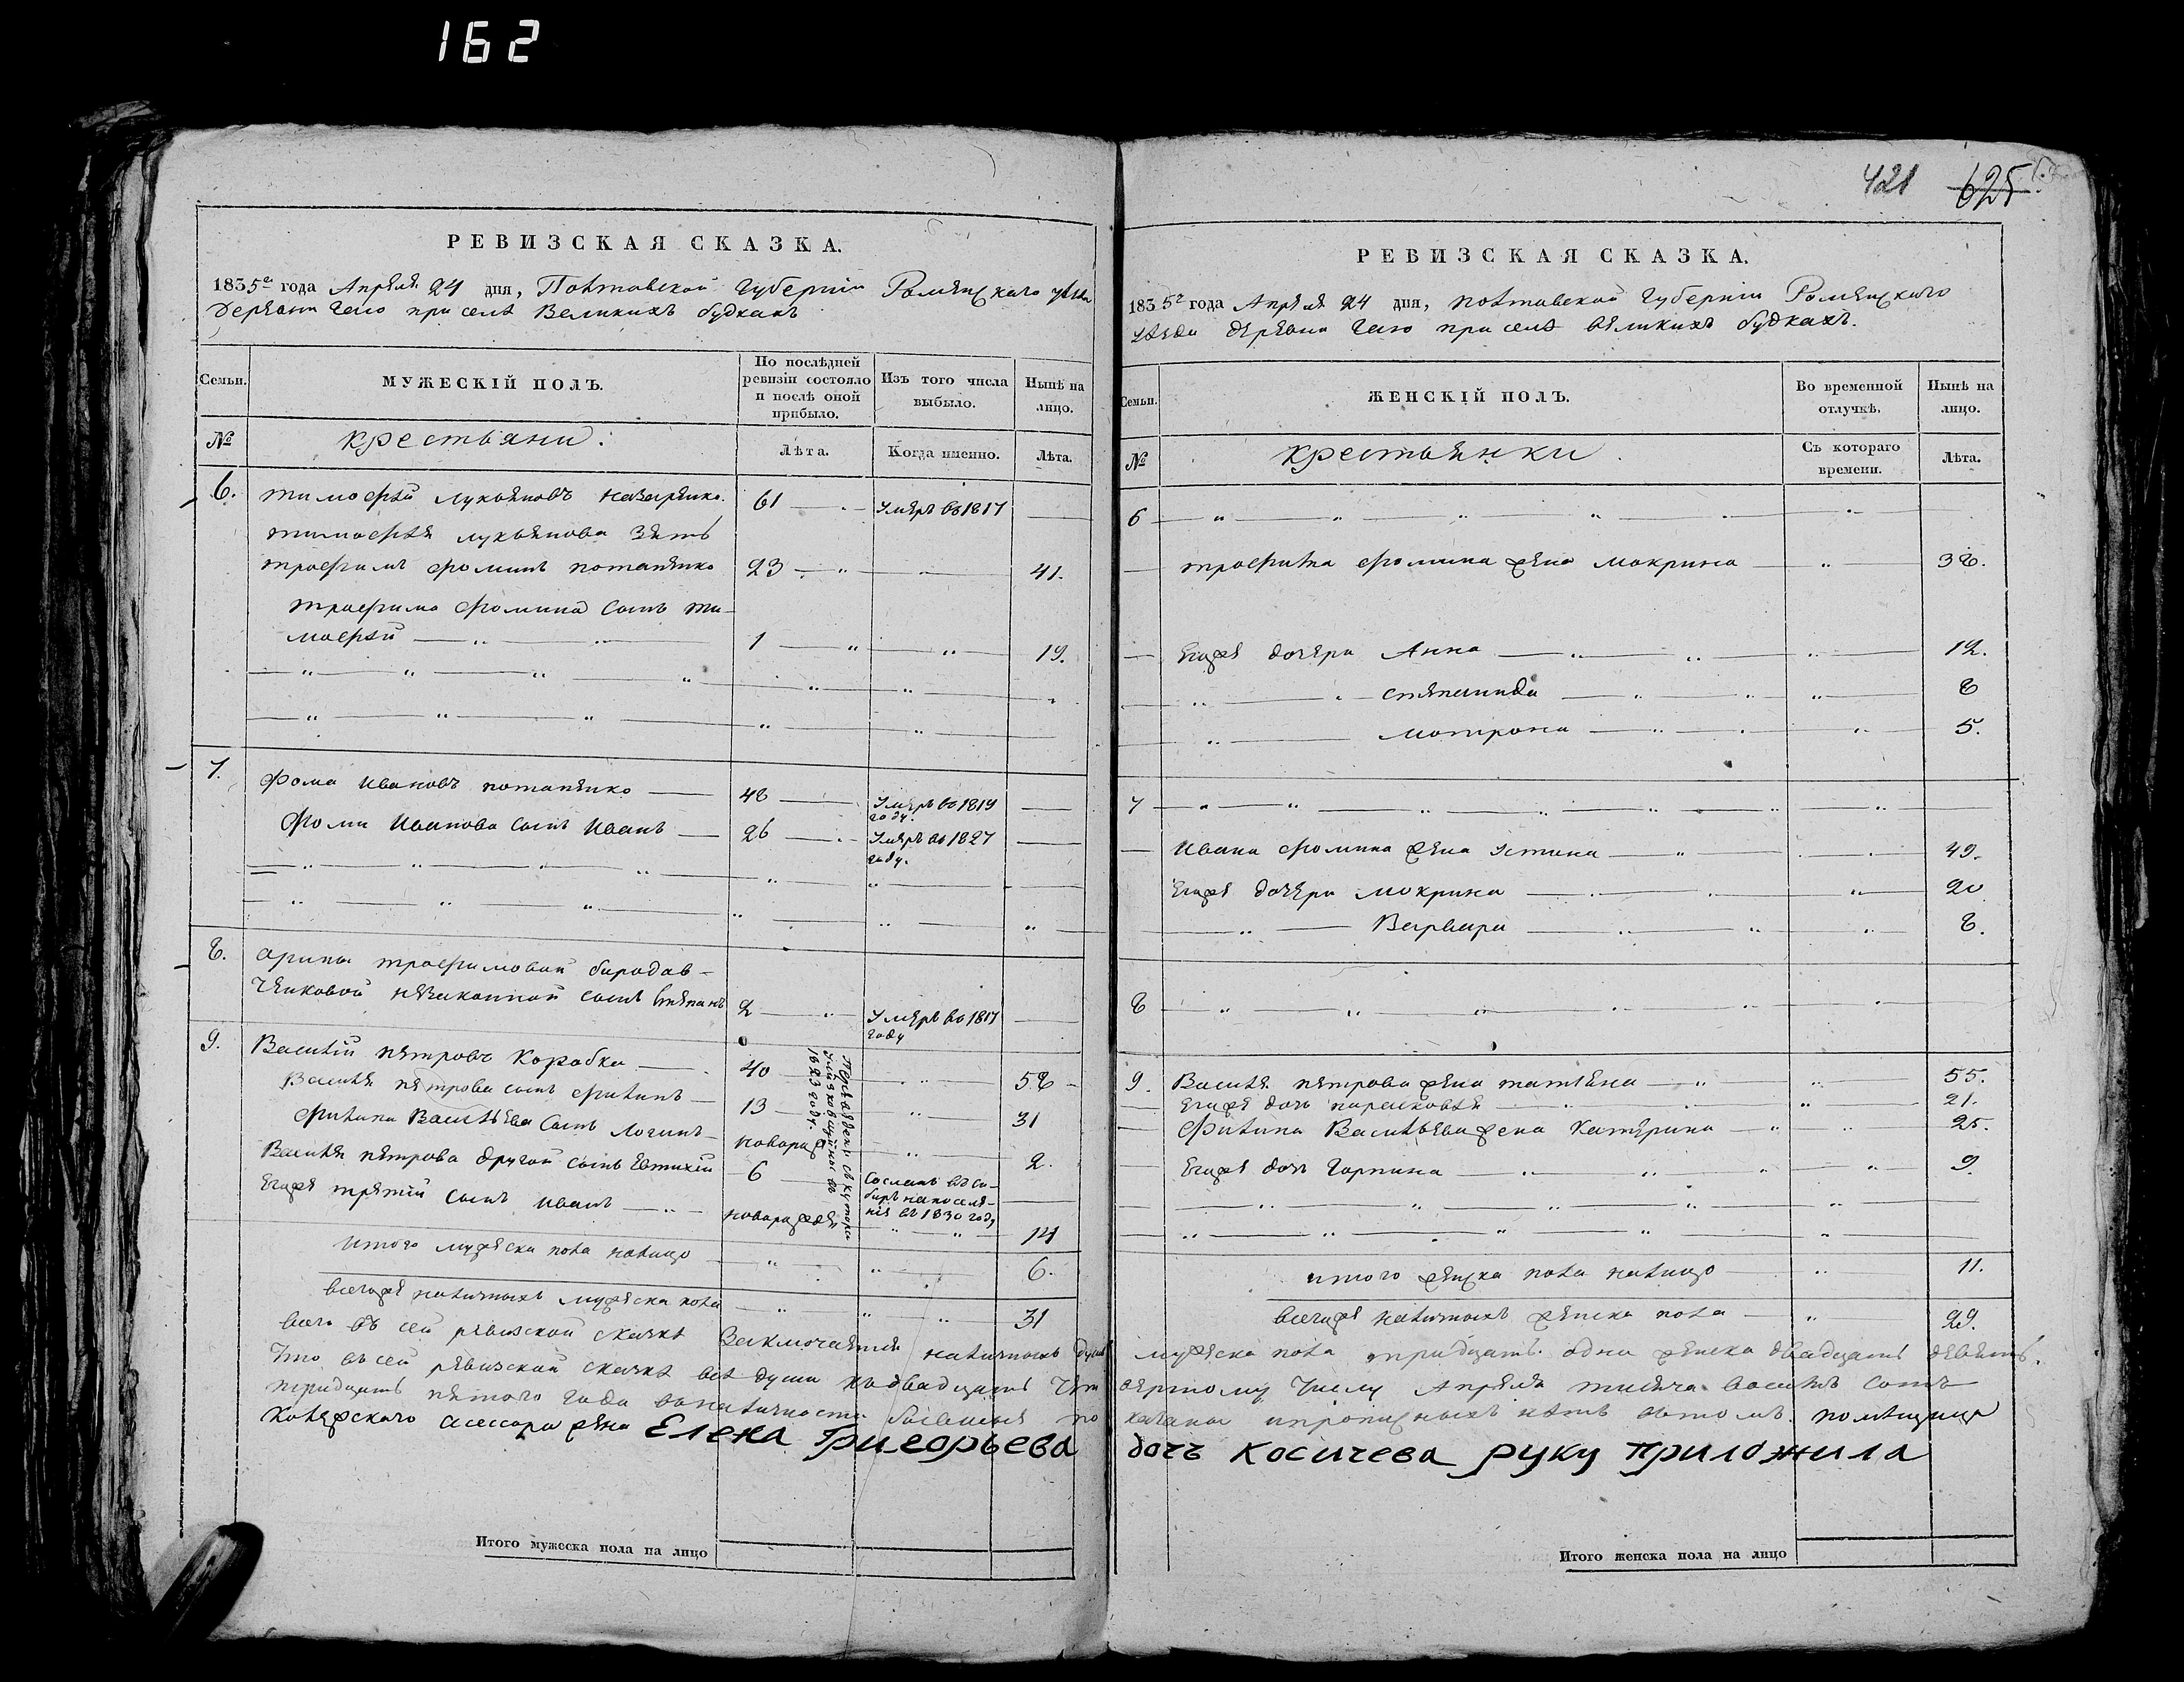 162
421 625
РЕВИЗСКАЯ СКАЗКА.
1835го года Апреля 24 дня, Полтавской Губернии Роменского уезда
деревни при селе Великихъ будкахъ
Семьи.
МУЖЕСКІЙ ПОЛЪ.
По послѣдней ревизіи состояло и послѣ оной прибыло.
Изъ того числа выбыло.
Нынѣ на лицо.
№
крестьяни.
Лѣта.
Когда именно.
Лѣта.
6. тимофей лукьяновъ назаренко. 61 Умеръ во 1817
тимофея лукьянова зять
трофимъ фоминъ потапенко 23 41.
трофима фомина сынъ ти-
мофей 1 19.
7. фома Ивановъ потапенко 48 Умеръ во 1819 году.
фомы Иванова сынъ Иванъ 26 Умеръ во 1827 году.
8. арины трофимовой бородав-
ченковой незаконной сынъ степанъ 2 Умеръ во 1817 году
9. Василій петровъ Коробка 40 58
Василія петрова сынъ филипъ 13 31
филипа Васильева сынъ логинъ новорож 2.
Василія петрова другой сынъ Евтихій 6 Сосланъ въ си-
биръ на поселе-
ніе въ 1830 году
Егоже третій сынъ иванъ новорожден 14
Переведены съ хутора
въ
1823 году.
итого мужеска пола налицо 6.
всегоже наличныхъ мужеска пола 31
РЕВИЗСКАЯ СКАЗКА.
1835го года Апреля 24 дня, полтавской Губернии Роменского
уезда деревни при селе великихъ будкахъ.
Семьи.
ЖЕНСКІЙ ПОЛЪ.
Во временной отлучкѣ.
Нынѣ на лицо.
№
крестьянки
Съ котораго времени.
Лѣта.
6
трофима фомина жена Мокрина 38.
Егоже дочери Анна 12.
степанида 8
мотрона 5.
7
Ивана фомина жена Устина 49.
Егоже дочери мокрина 20
Варвара 8.
8
9. Василія петрова жена татіана 55.
Егоже дочь парасковія 21.
филипа Васильева жена Катерина 25.
Егоже дочь Горпина 9.
итого женска пола налицо 11.
всегоже наличныхъ женска пола 29.
всего въ сей ревизской сказке Заключается наличныхъ душъ мужеска пола тридцать одна женска двадцать девять.
Что въ сей ревизской сказке все души къ двадцать четвертому числу Апреля тысяча восемь сотъ
тридцать пятого года въ наличности бывшыя показаны и прописныхъ нетъ втомъ помещица
колежского асессора жена Елена Григорьева дочъ Косичева руку приложила
Итого мужеска пола на лицо
Итого женска пола на лицо